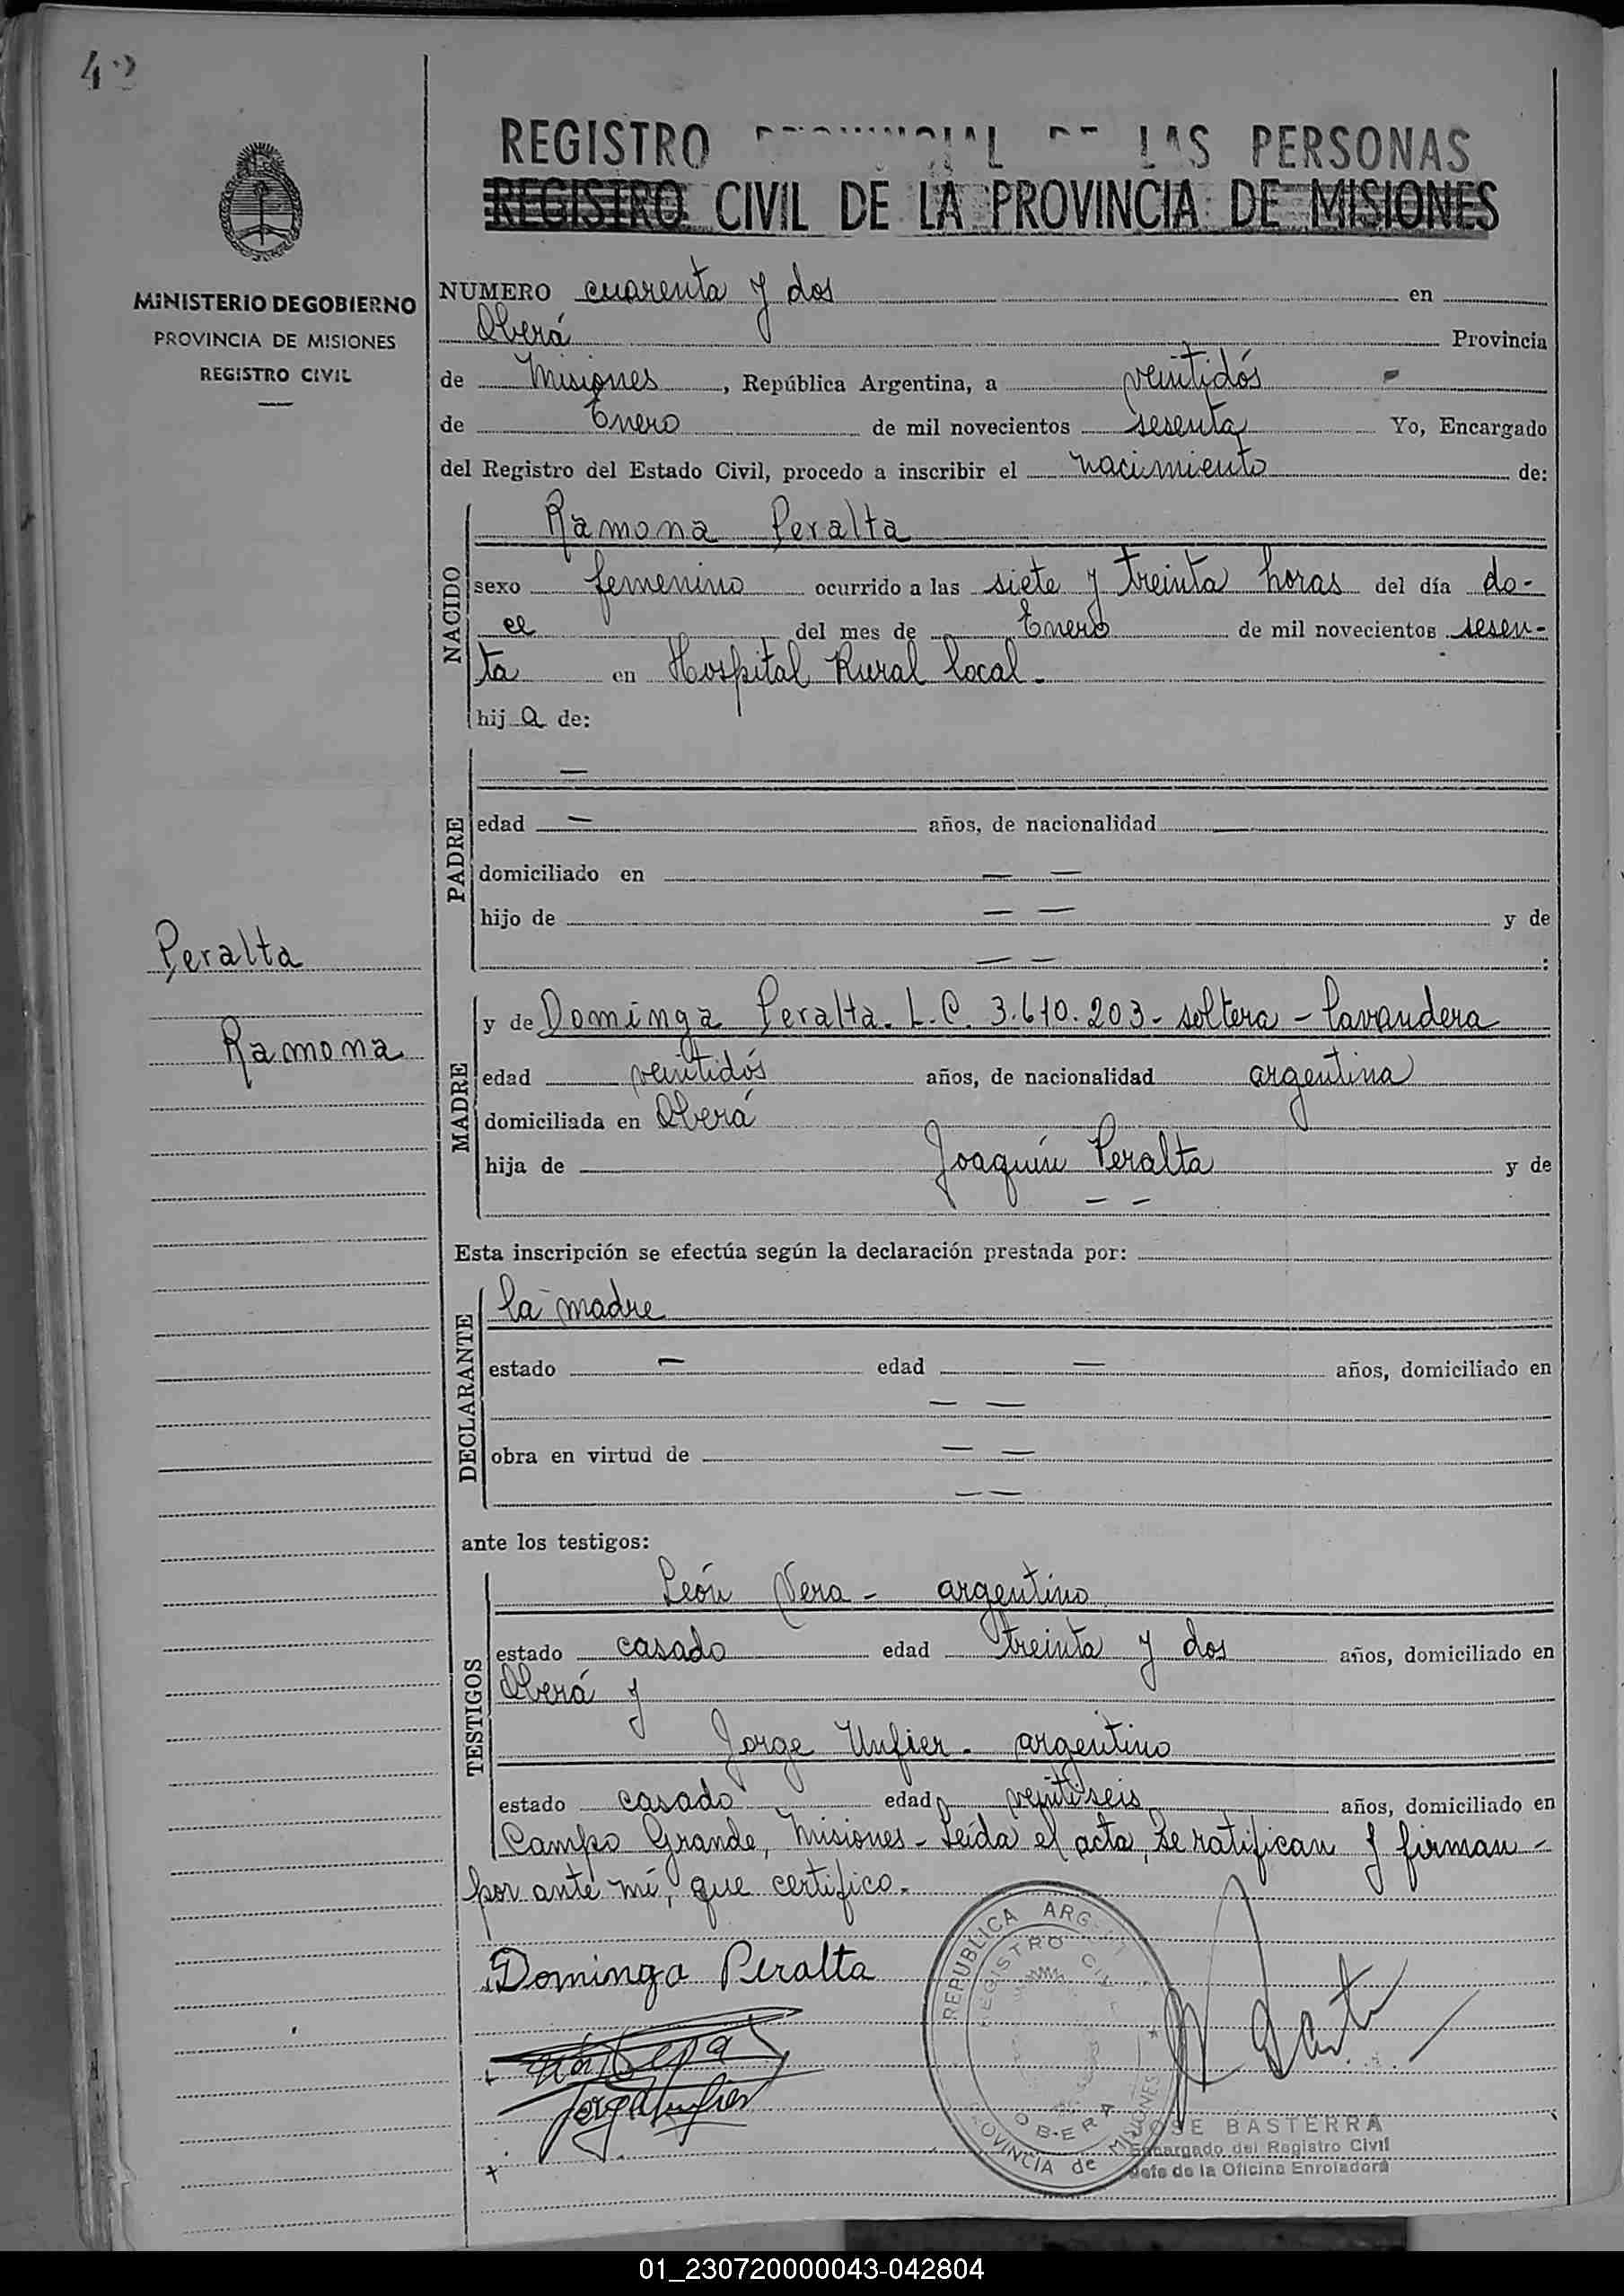 42
REGISTRO PROVINCIAL DE LAS PERSONAS
REGISTRO CIVIL DE LA PROVINCIA DE MISIONES
MINISTERIO DE GOBIERNO
PROVINCIA DE MISIONES
REGISTRO CIVIL
NUMERO cuarenta y dos en
Oberá Provincia
de Misiones, República Argentina, a veintidós
de Enero de mil novecientos sesenta Yo, Encargado
del Registro del Estado Civil, procedo a inscribir el nacimiento de:
NACIDO
Ramona Peralta
sexo femenino ocurrido a las siete y treinta horas del día do-
ce del mes de Enero de mil novecientos sesen-
ta en Hospital Rural local.
hija de:
PADRE
—
edad — años, de nacionalidad —
domiciliado en — —
hijo de — — y de
— — :
Peralta
Ramona
MADRE
y de Dominga Peralta. L.C. 3.610.203 - soltera - lavandera
edad veintidós años, de nacionalidad argentina
domiciliada en Oberá
hija de Joaquín Peralta y de
— —
Esta inscripción se efectúa según la declaración prestada por:
DECLARANTE
la madre
estado — edad — años, domiciliado en
— —
obra en virtud de — —
— —
ante los testigos:
TESTIGOS
León Vera - argentino
estado casado edad treinta y dos años, domiciliado en
Oberá y
Jorge Unfier - argentino
estado casado edad veintiseis años, domiciliado en
Campo Grande, Misiones - Leída el acta, se ratifican y firman -
por ante mí, que certifico.
Dominga Peralta
Jorge Unfier
REPUBLICA ARGENTINA
REGISTRO CIVIL
OBERA
PROVINCIA de MISIONES
JOSE BASTERRA
Encargado del Registro Civil
Jefe de la Oficina Enroladora
01_230720000043-042804